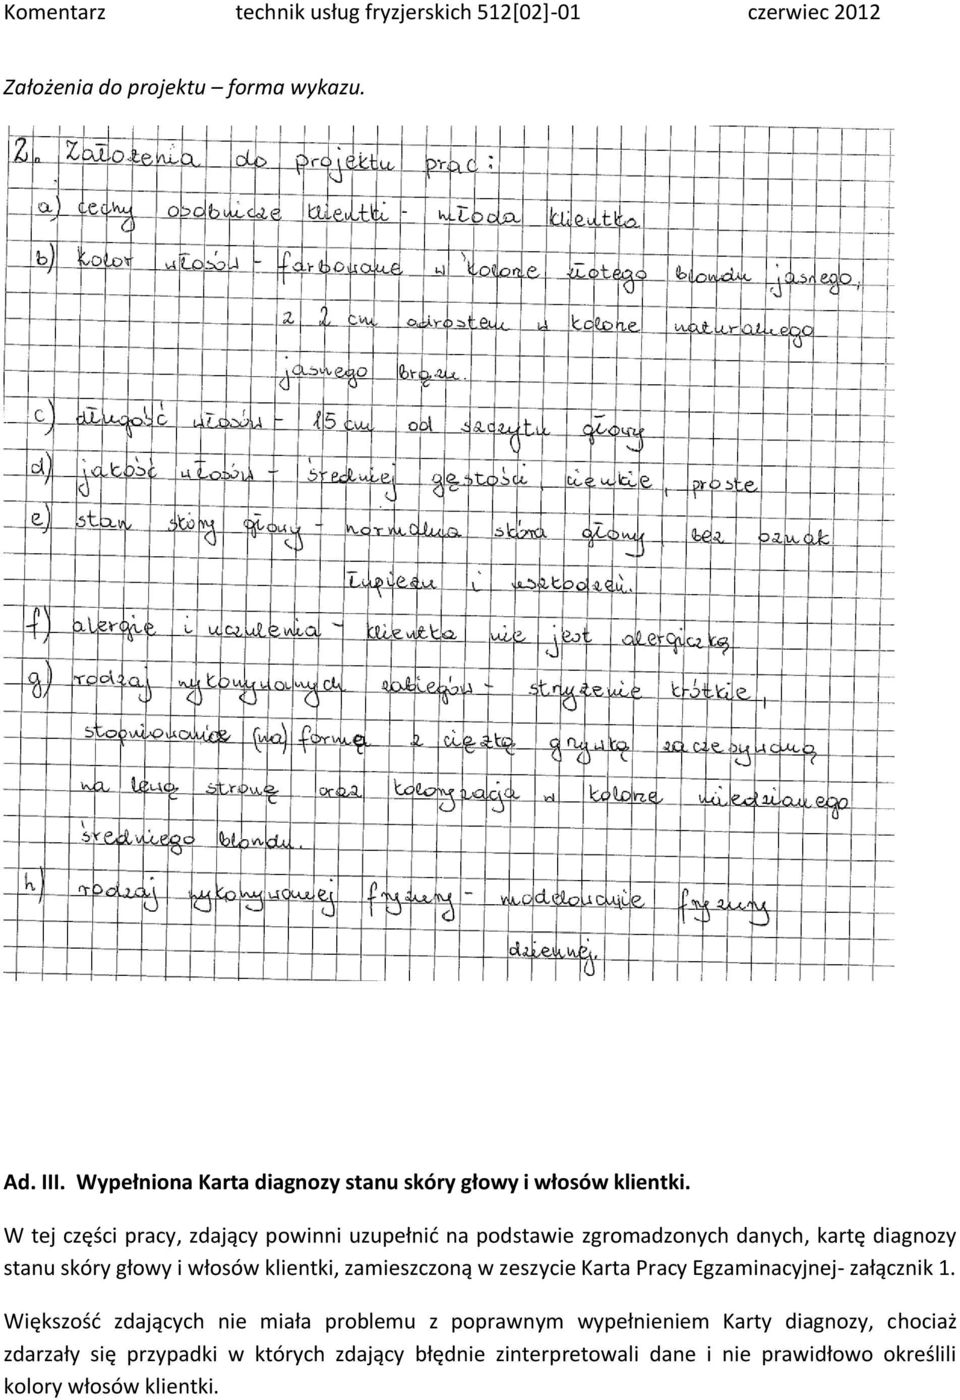 Komentarz technik usług fryzjerskich 512[02]-01 czerwiec 2012
Założenia do projektu – forma wykazu.
2. Założenia do projektu prac:
a) cechy osobnicze klientki - młoda klientka
b) kolor włosów - farbowane w kolorze złotego blondu jasnego,
z 2 cm odrostem w kolorze naturalnego
jasnego brązu.
c) długość włosów - 15 cm od szczytu głowy
d) jakość włosów - średniej gęstości, cienkie, proste
e) stan skóry głowy - normalna skóra głowy bez oznak
łupieżu i uszkodzeń.
f) alergie i uczulenia - klientka nie jest alergiczką
g) rodzaj wykonywanych zabiegów - strzyżenie krótkie,
stopniowanie (na) formę z ciężką grzywką zaczesywaną
na lewą stronę oraz koloryzacja w kolorze miedzianego
średniego blondu.
h) rodzaj wykonywanej fryzury - modelowanie fryzury
dziennej.
Ad. III. Wypełniona Karta diagnozy stanu skóry głowy i włosów klientki.
W tej części pracy, zdający powinni uzupełnić na podstawie zgromadzonych danych, kartę diagnozy
stanu skóry głowy i włosów klientki, zamieszczoną w zeszycie Karta Pracy Egzaminacyjnej- załącznik 1.
Większość zdających nie miała problemu z poprawnym wypełnieniem Karty diagnozy, chociaż
zdarzały się przypadki w których zdający błędnie zinterpretowali dane i nie prawidłowo określili
kolory włosów klientki.